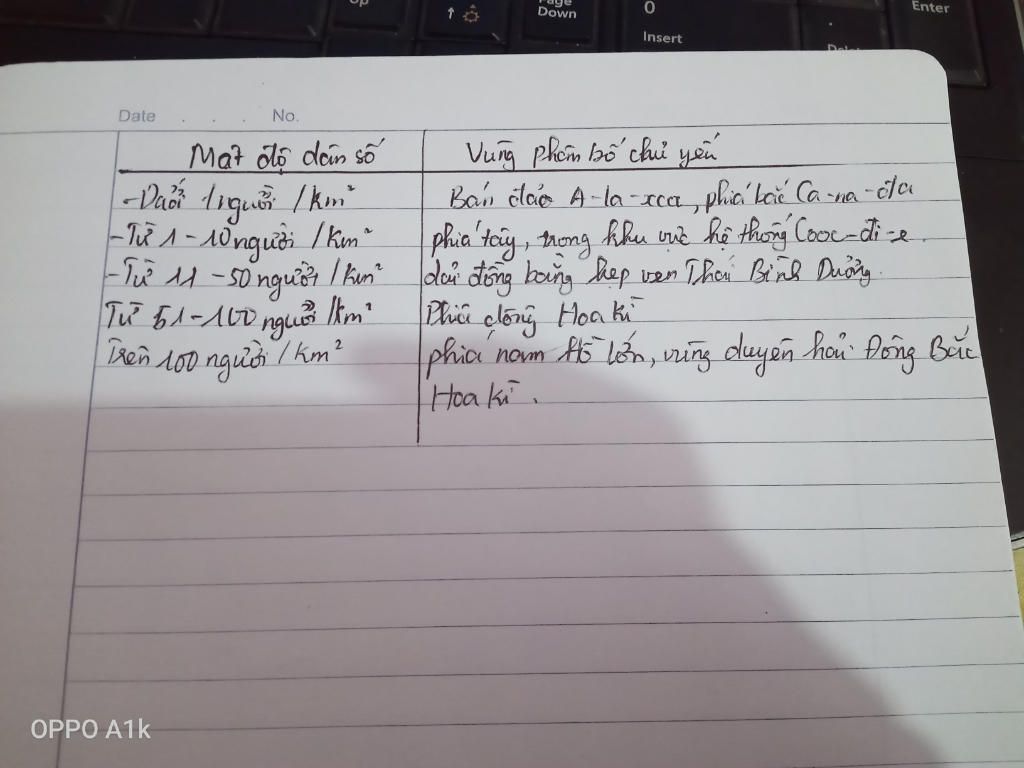 Page
Down
0
Insert
Enter
Date . . . No.
Mật độ dân số Vùng phân bố chủ yếu
-Dưới 1 người /km² Bán đảo A-la-xca, phía bắc Ca-na-đa
-Từ 1 - 10 người /km² phía tây, trong khu vực hệ thống Cooc-đi-e.
-Từ 11 - 50 người /km² dải đồng bằng hẹp ven Thái Bình Dương.
Từ 51-100 người /km² Phía đông Hoa kì
Trên 100 người /km² phía nam Hồ lớn, vùng duyên hải Đông Bắc
Hoa kì.
OPPO A1k